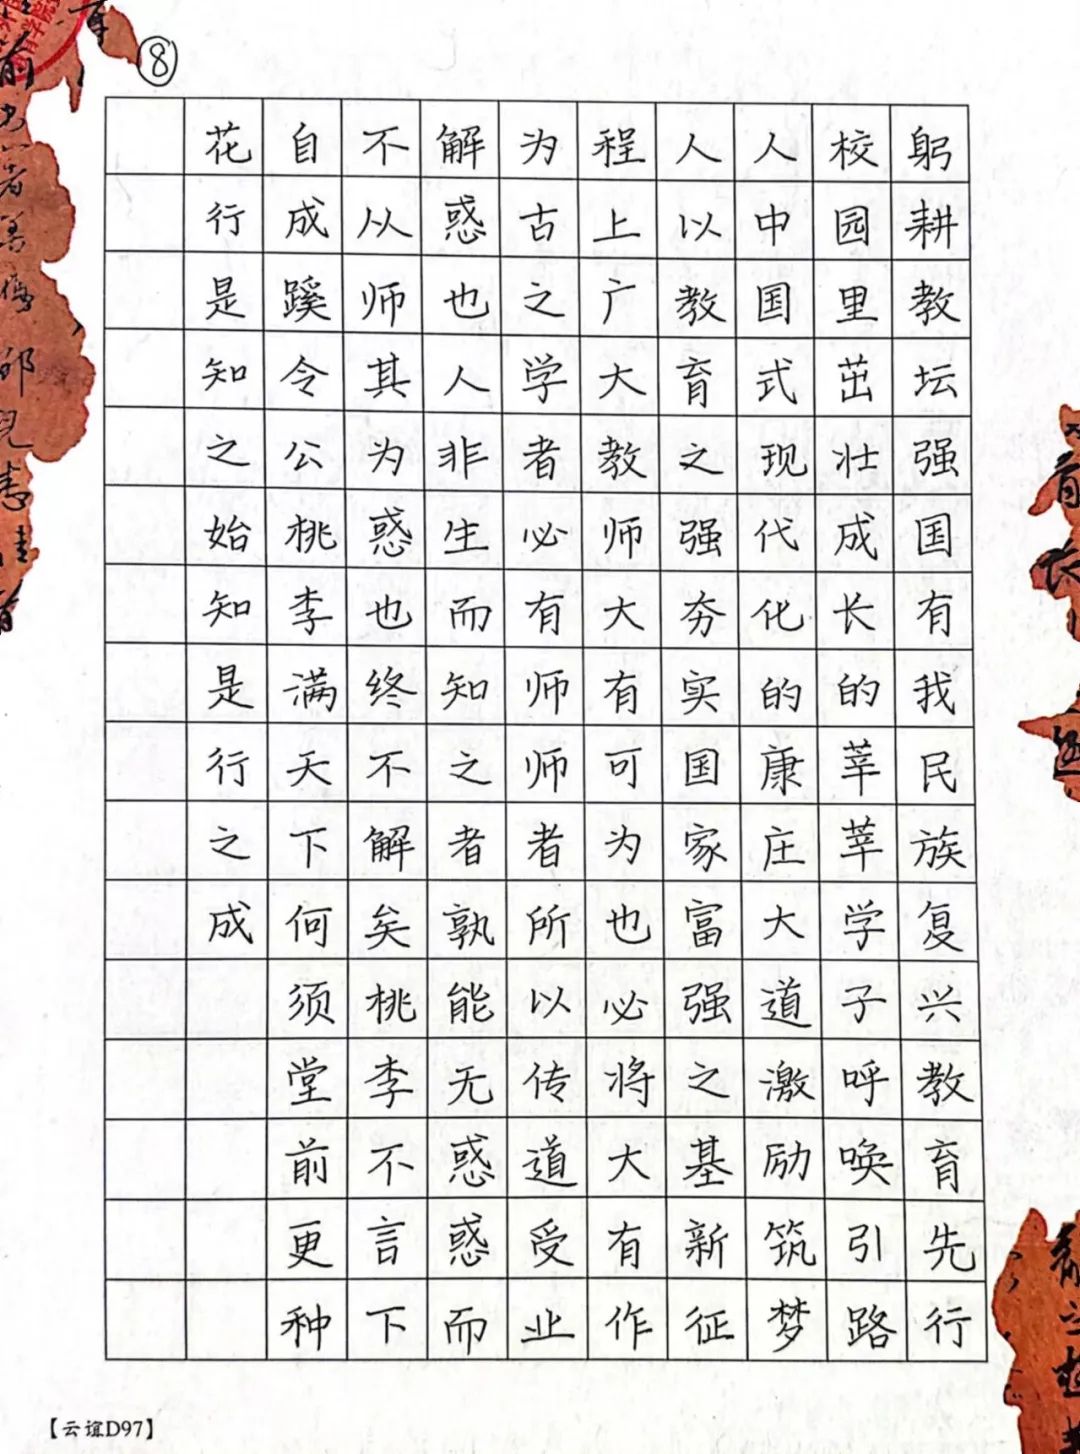 ⑧
躬耕教坛强国有我民族复兴教育先行
校园里茁壮成长的莘莘学子呼唤引路
人中国式现代化的康庄大道激励筑梦
人以教育之强夯实国家富强之基新征
程上广大教师大有可为也必将大有作
为古之学者必有师师者所以传道受业
解惑也人非生而知之者孰能无惑惑而
不从师其为惑也终不解矣桃李不言下
自成蹊令公桃李满天下何须堂前更种
花行是知之始知是行之成
【云谊D97】